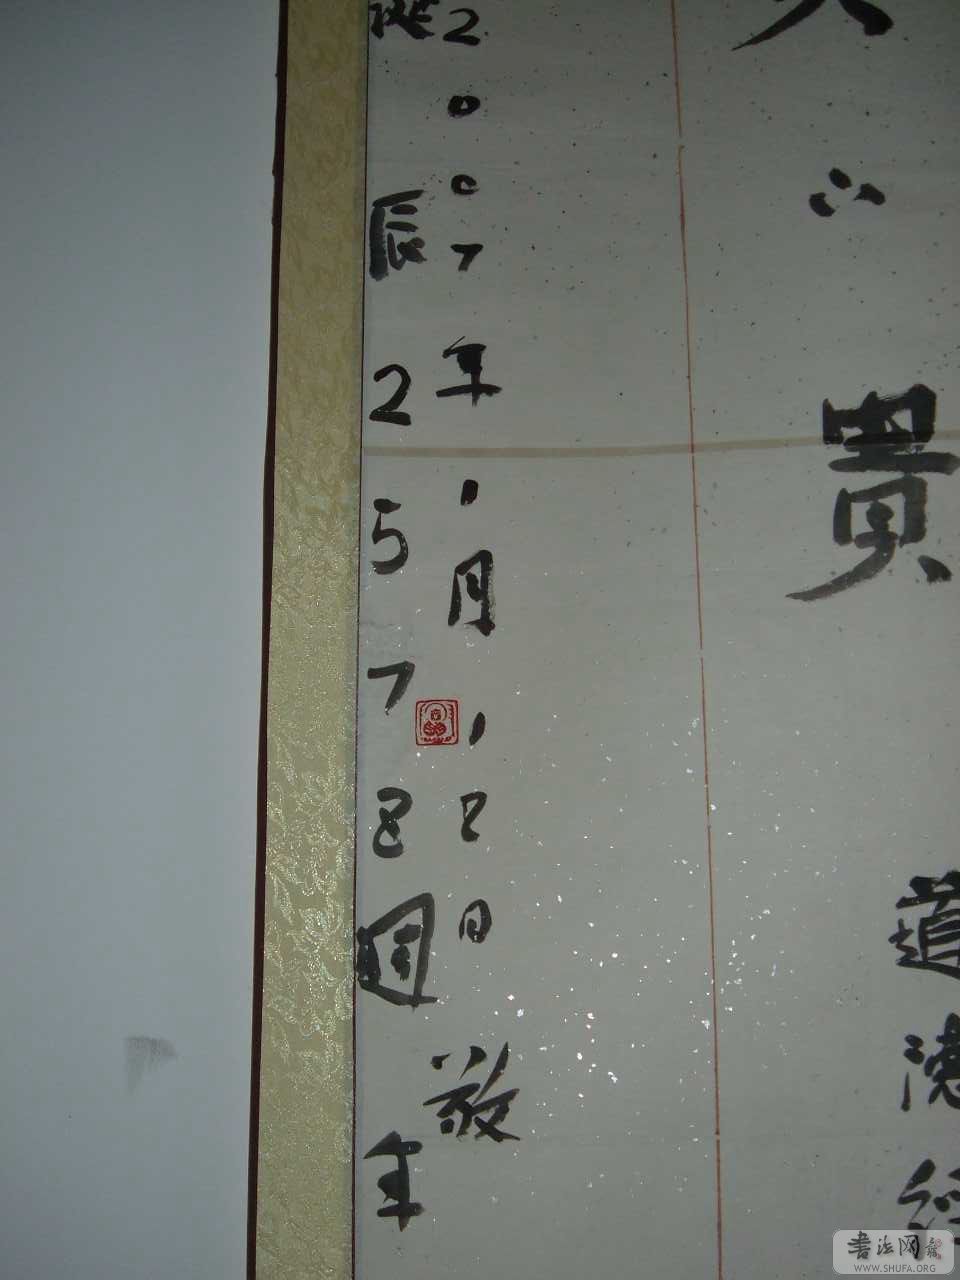 貴
道德經
2007年1月18日敬
誕辰2578週年
書法网
WWW.SHUFA.ORG